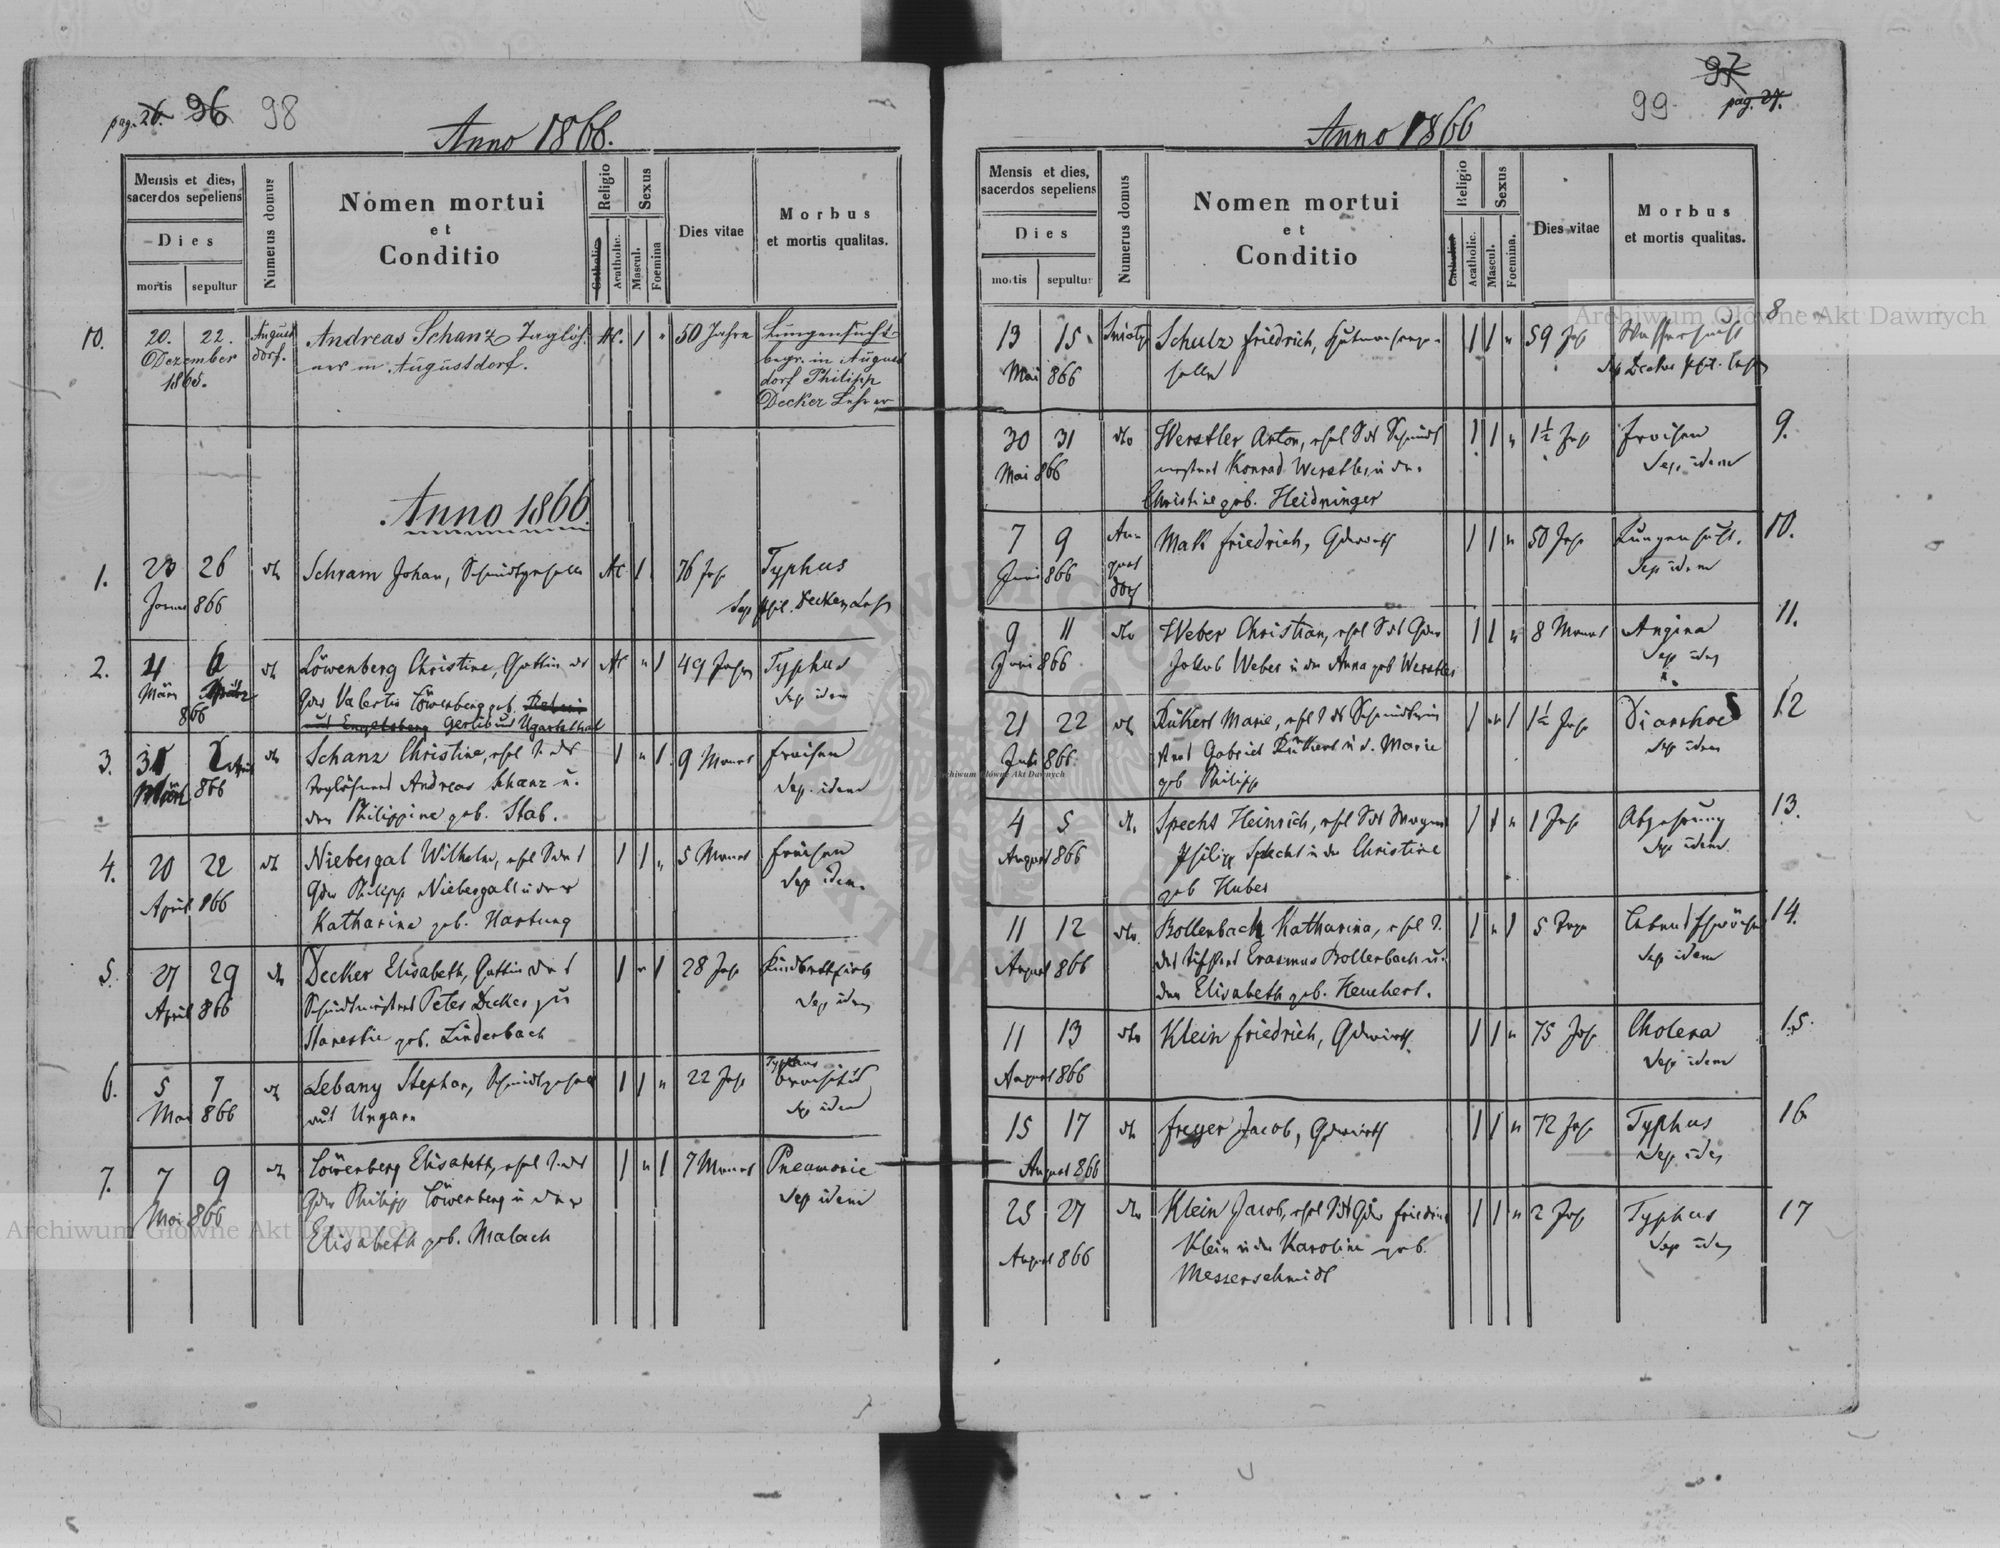 pag. 26. 96 98
Anno 1866.
Mensis et dies,
sacerdos sepeliens
Dies
mortis sepultur
Numerus domus
Nomen mortui
et
Conditio
Religio
Catholic.
Acatholic.
Sexus
Mascul.
Foemina
Dies vitae
Morbus
et mortis qualitas.
10. 20. 22. August Andreas Schanz Taglöh. AC. 1 " 50 Jahre Lungensucht
Dezember dorf. ner in Augustdorf. begr. in August
1865. dorf Philipp
Decker Lehrer
Anno 1866.
1. 23 26 dto Schram Johan, Schmidtgeselle AC 1 76 Jahr Typhus
Januar 866 Sep Phil. Decker Lehr
2. 4 6 dto Löwenberg Christine, Gattin des AC " 1 49 Jahr Typhus
März Gdw Valentin Löwenberg geb. Sep idem
866 Gerlib aus Ugartsthal
3. 31 2 April dto Schanz Christine, ehel T. des 1 " 1 9 Monat Fraisen
März 866 Taglöhners Andreas Schanz u. Sep. idem
der Philippine geb. Stab.
4. 20 22 dto Niebergal Wilhelm, ehel S des 1 1 " 5 Monat Fraisen
April 866 Gdw Philipp Niebergall u der Sep idem
Katharina geb. Hartung
5. 27 29 dto Decker Elisabeth, Gattin des 1 " 1 28 Jahr Kindbettfieb
April 866 Schmidtmeisters Peter Decker zu Sep idem
geb. Linderbach
6. 5 7 dto Lebany Stephan, Schmidtgesell 1 1 " 22 Jahr Typhus
Mai 866 aus Ungarn Sep idem
7. 7 9 dto Löwenberg Elisabeth, ehel T. des 1 " 1 7 Monat Pneumonie
Mai 866 Gdw Philipp Löwenberg u der Sep idem
Elisabeth geb. Malach
97
99 pag. 27.
Anno 1866
Mensis et dies,
sacerdos sepeliens
Dies
mortis sepultur
Numerus domus
Nomen mortui
et
Conditio
Religio
Catholic
Acatholic.
Sexus
Mascul.
Foemina.
Dies vitae
Morbus
et mortis qualitas.
13 15 Schulz Friedrich, 1 1 " 59 Jahr Wassersucht 8
Mai 866 Sep Decker Phil. Lehr
30 31 dto Werstler Anton, ehel S des Schmidt 1 1 " 1½ Jahr Fraisen 9.
Mai 866 meisters Konrad Werstler u der Sep. idem
Christine geb. Heidninger
7 9 Au- Mak Friedrich, Gdwirth 1 1 " 50 Jahr Lungensucht. 10.
Juni 866 gust Sep idem
dorf
9 11 dto Weber Christian, ehel S des Gdw 1 1 " 8 Monat Angina 11.
Juni 866 Jakob Weber u der Anna geb Werstler Sep idem
21 22 dto Rükert Marie, ehel T des Schmidtmei 1 " 1 1½ Jahr Diarrhoe 12
Juli 866. sters Gabriel Rükert u d. Marie Sep idem
geb Philipp
4 5 dto Specht Heinrich, ehel S des Wagners 1 1 " 1 Jahr Abzehrung 13.
August 866 Philipp Specht u der Christine Sep idem.
geb Huber
11 12 dto. Bollenbach Katharina, ehel T. 1 " 1 5 Tage Lebensschwäche 14.
August 866 des Erasmus Bollenbach u. Sep idem
der Elisabeth geb. Heuchert.
11 13 dto Klein Friedrich, Gdwirth 1 1 " 75 Jahr Cholera 15.
August 866 Sep idem
15 17 dto Freyer Jacob, Gdwirth 1 1 " 72 Jahr Typhus 16
August 866 Sep idem
25 27 dto Klein Jacob, ehel S des Gdw Friedrich 1 1 " 2 Jahr Typhus 17
August 866 Klein u der Karoline geb. Sep idem
Messerschmidt
Archiwum Główne Akt Dawnych
Archiwum Główne Akt Dawnych
Archiwum Główne Akt Dawnych